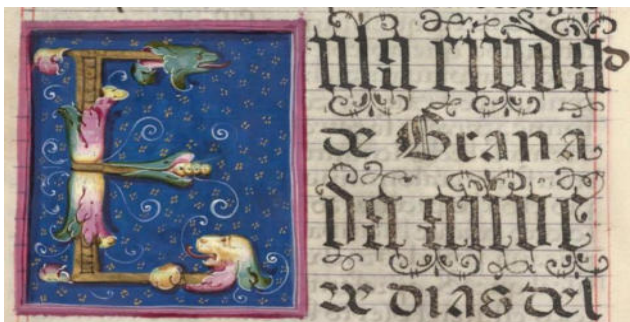 Enla ciudad
de Grana
da anue
ve dias del